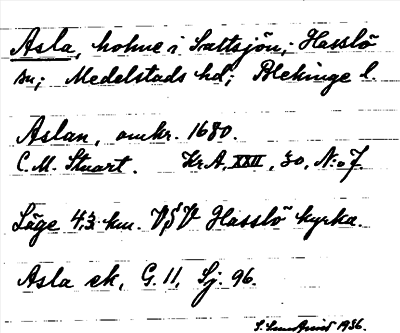 Asla, holme i Saltsjön, Hasslö
sn; Medelstads hd; Blekinge l.
Aslan, omkr. 1680.
C.M. Stuart. Kr.A, XXII, 30, N:o 7.
Läge 4,3 km. VSV Hasslö kyrka.
Asla ek, G. 11, Sj. 96.
1936.